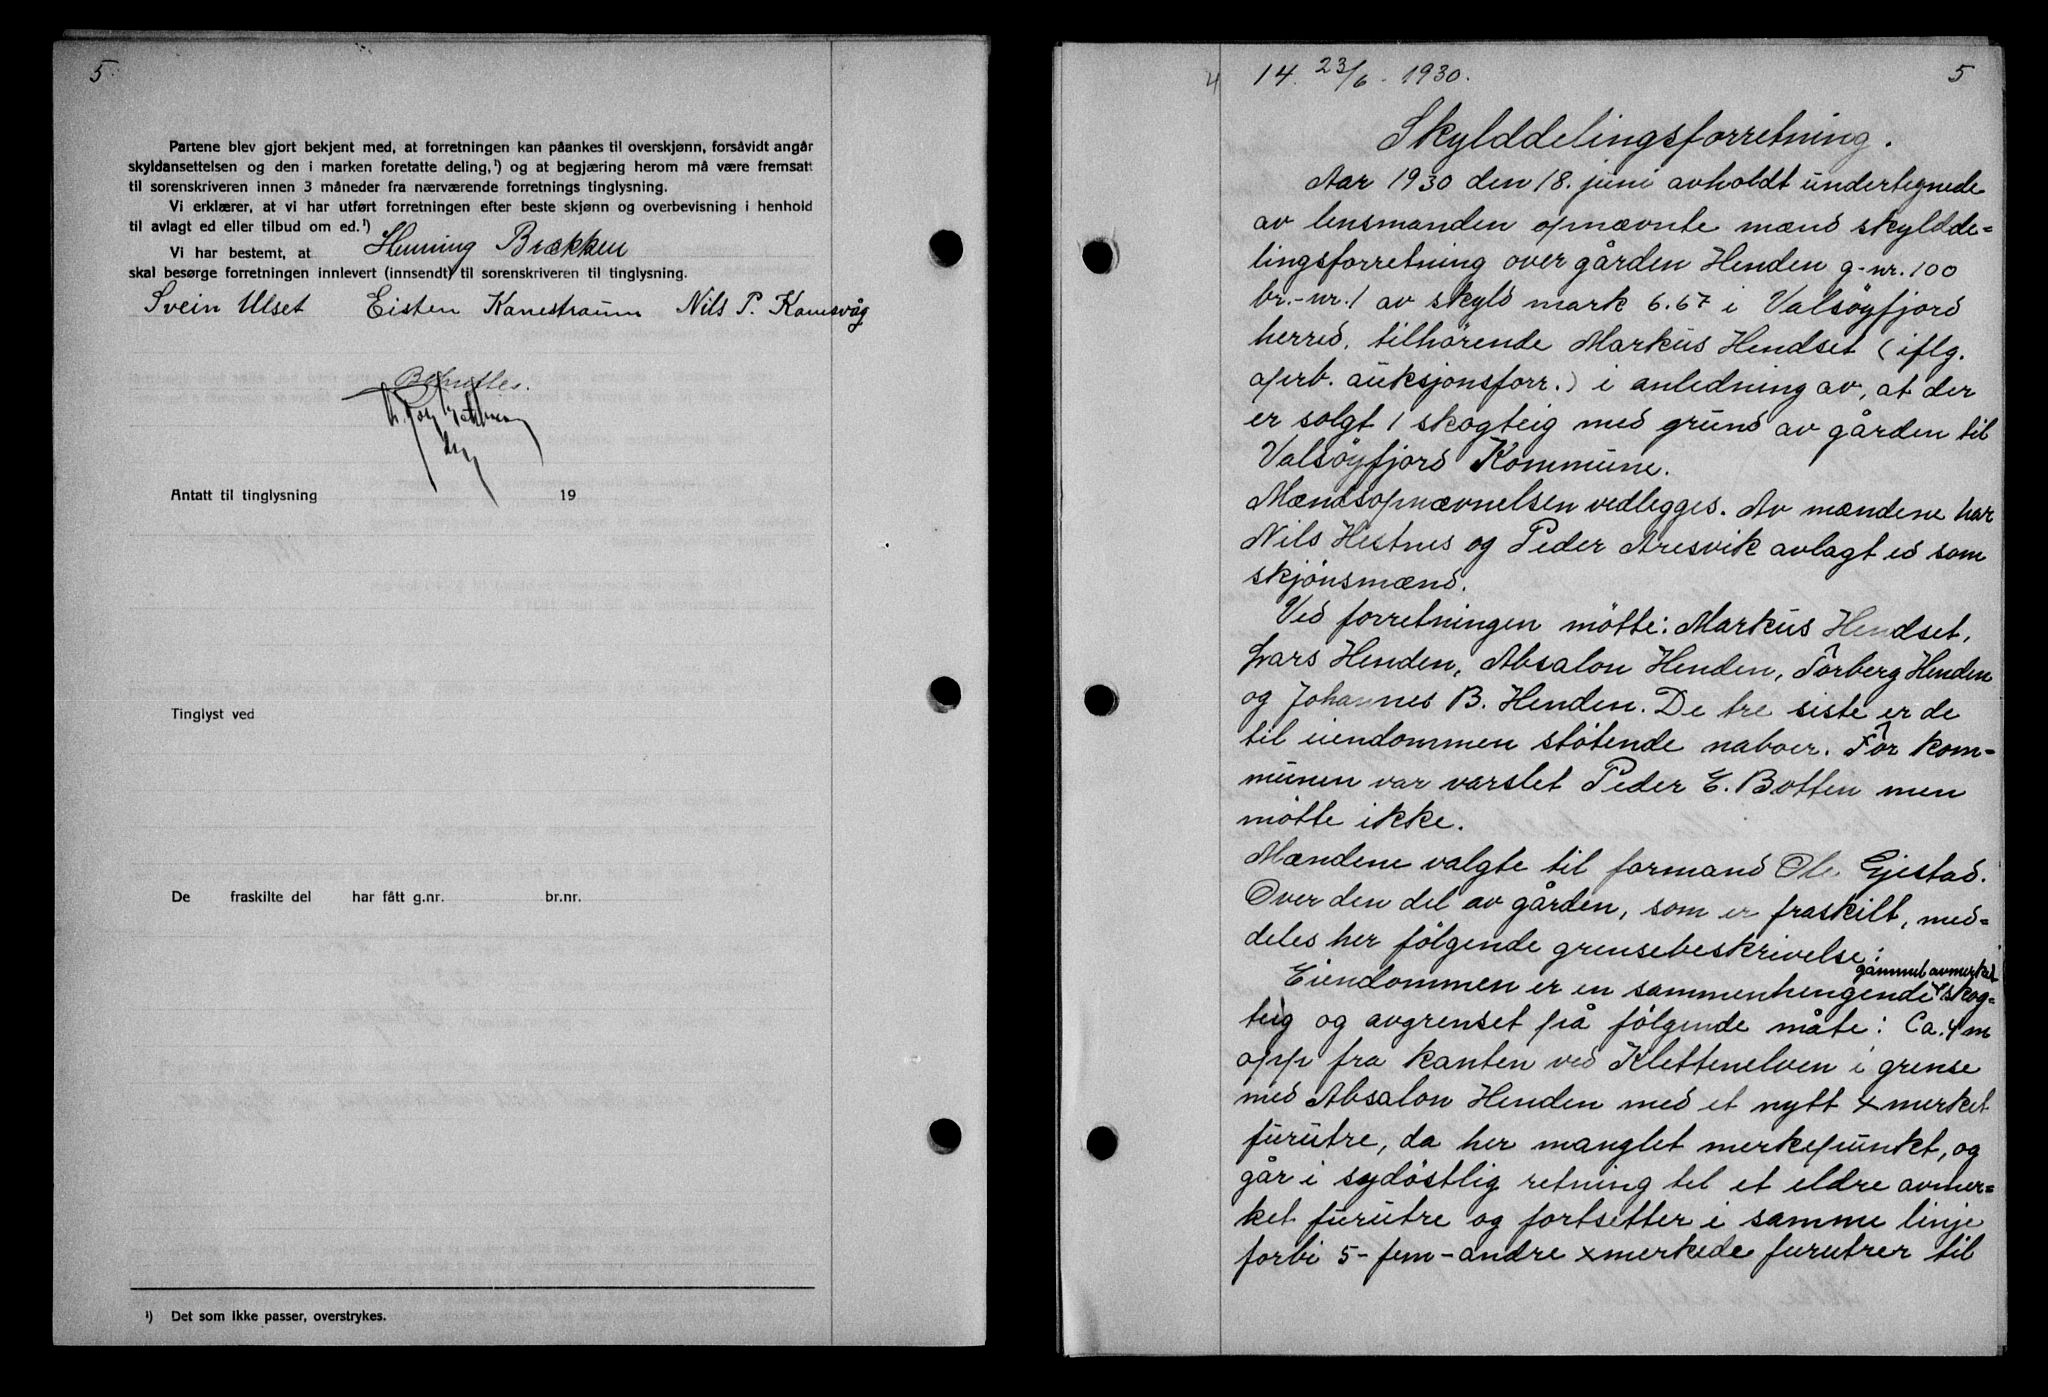 5.
Partene blev gjort bekjent med, at forretningen kan påankes til overskjønn, forsåvidt angår
skyldansettelsen og den i marken foretatte deling,¹) og at begjæring herom må være fremsatt
til sorenskriveren innen 3 måneder fra nærværende forretnings tinglysning.
Vi erklærer, at vi har utført forretningen efter beste skjønn og overbevisning i henhold
til avlagt ed eller tilbud om ed.¹)
Vi har bestemt, at Henning Brækken
skal besørge forretningen innlevert (innsendt) til sorenskriveren til tinglysning.
Svein Ulset Eisten Kanestraum Nils P. Kanesvåg
Antatt til tinglysning 19
Tinglyst ved
De fraskilte del har fått g.nr. br.nr.
¹) Det som ikke passer, overstrykes.
4 14. 23/6. 1930. 5
Skylddelingsforretning.
Aar 1930 den 18. juni avholdt undertegnede
av lensmanden opnævnte mænd skyldde=
lingsforretning over gården Henden g-nr. 100
br.-nr. 1 av skyld mark 6.67 i Valsøyfjord
herred, tilhørende Markus Hendset (iflg.
oprb. auksjonsforr.) i anledning av, at der
er solgt 1 skogteig med grund av gården til
Valsøyfjord Kommune.
Mændsopnævnelsen vedlegges. Av mændene har
Nils Hestnes og Peder Aresvik avlagt ed som
skjønsmænd.
Ved forretningen møtte: Markus Hendset,
Lars Henden, Absalon Henden, Torberg Henden
og Johannes B. Henden. De tre siste er de
til eiendommen støtende naboer. For kom=
munen var varslet Peder E. Botten men
møtte ikke.
Mændene valgte til formand Ole Gjestad.
Over den del av gården, som er fraskilt, med=
deles her følgende grensebeskrivelse:
gammel avmerket
Eiendommen er en sammenhengende skog=
teig og avgrenset på følgende måte: Ca. 4 m
opp fra kanten ved Klettenelven i grense
med Absalon Henden med et nytt x merket
furutre, da her manglet merkepunkt, og
går i sydøstlig retning til et eldre avmer=
ket furutre og fortsetter i samme linje
forbi 5 - fem - andre xmerkede furutrer til